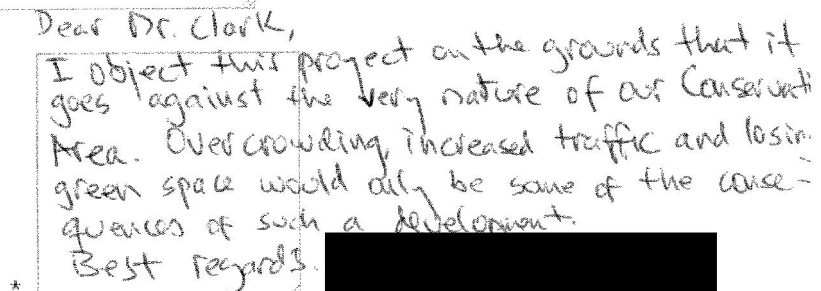 Dear Dr. Clark,
I object this project on the grounds that it
goes against the very nature of our Conservati
Area. Overcrowding, increased traffic and losin
green space would only be some of the conse-
quences of such a development.
Best regards.
*